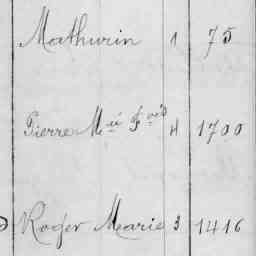 Mathurin 1 75
Pierre M 4 1700
Roger Marie 3 1416